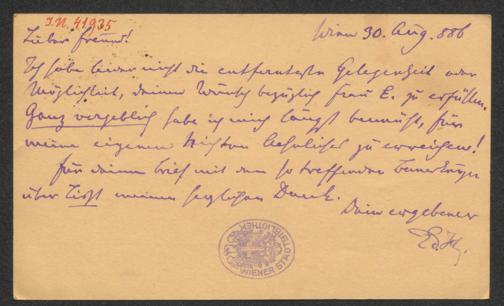 I.N. 41935
Wien 30. Aug. 886
Lieber Freund!
Ich habe leider nicht die entfernteste Gelegenheit oder
Möglichkeit, deinen Wunsch bezüglich Frau E. zu erfüllen.
Ganz vergeblich habe ich mich längst bemüht, für
meine eigenen Nichten Aehnliches zu erreichen!
Für deinen Brief mit den so treffenden Bemerkungen
über Liszt meinen herzlichen Dank.
Dein ergebener
WIENER STADTBIBLIOTHEK